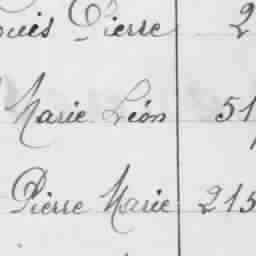 ouis Pierre 2
Marie Léon 51
Pierre Marie 215